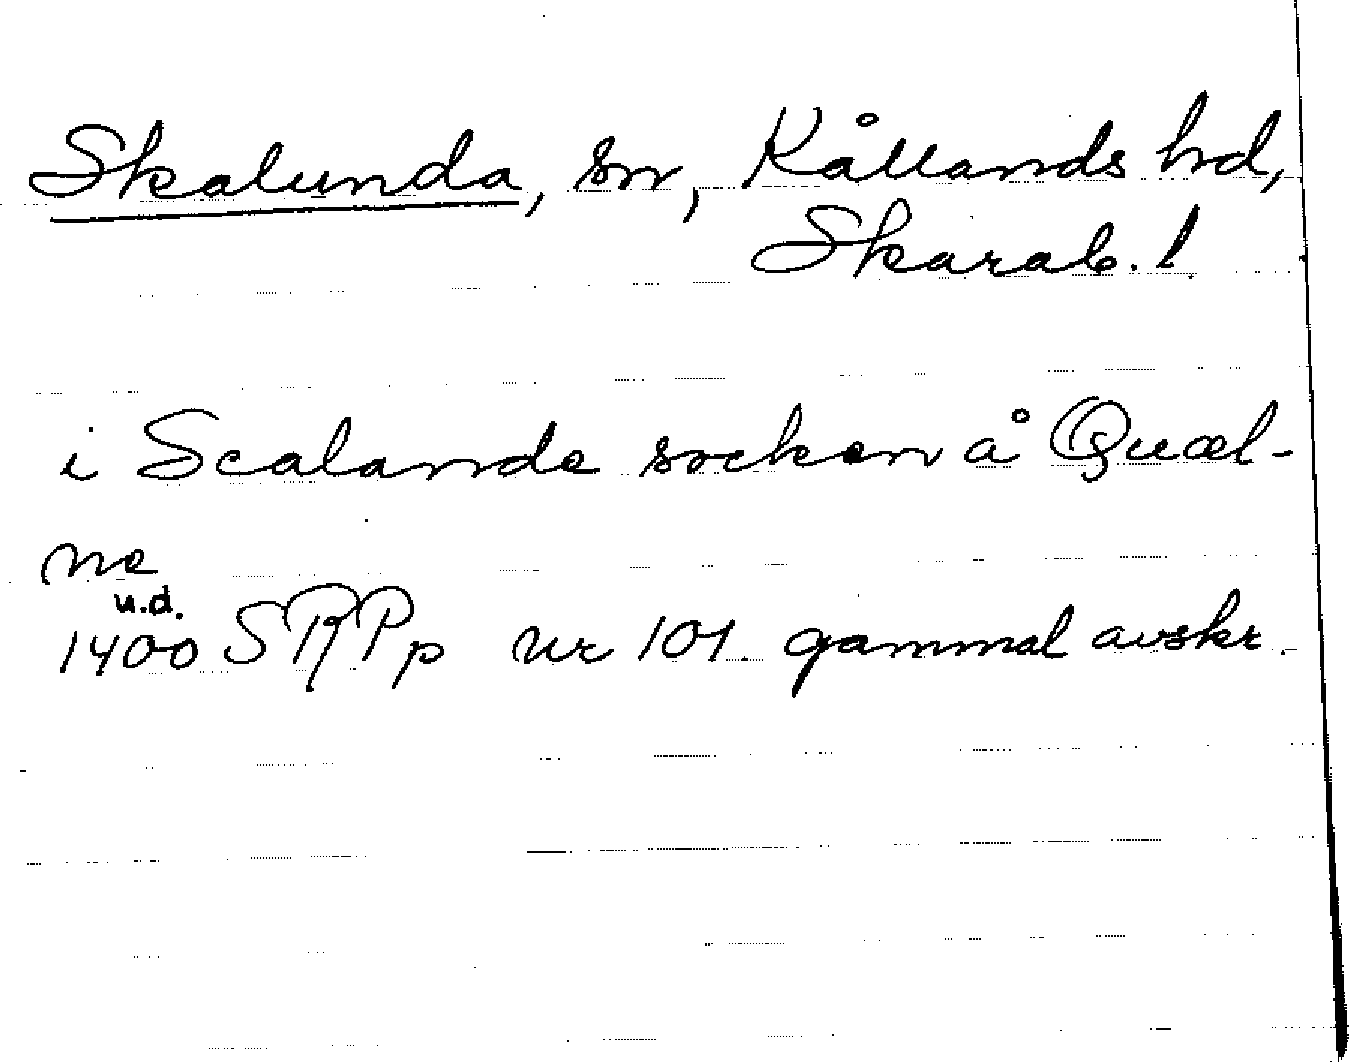 Skalunda, sn, Kållands hd,
Skarab. l.
i Scalande socken å Quæl-
ne
u.d.
1400 SRPp nr 101 gammal avskr.